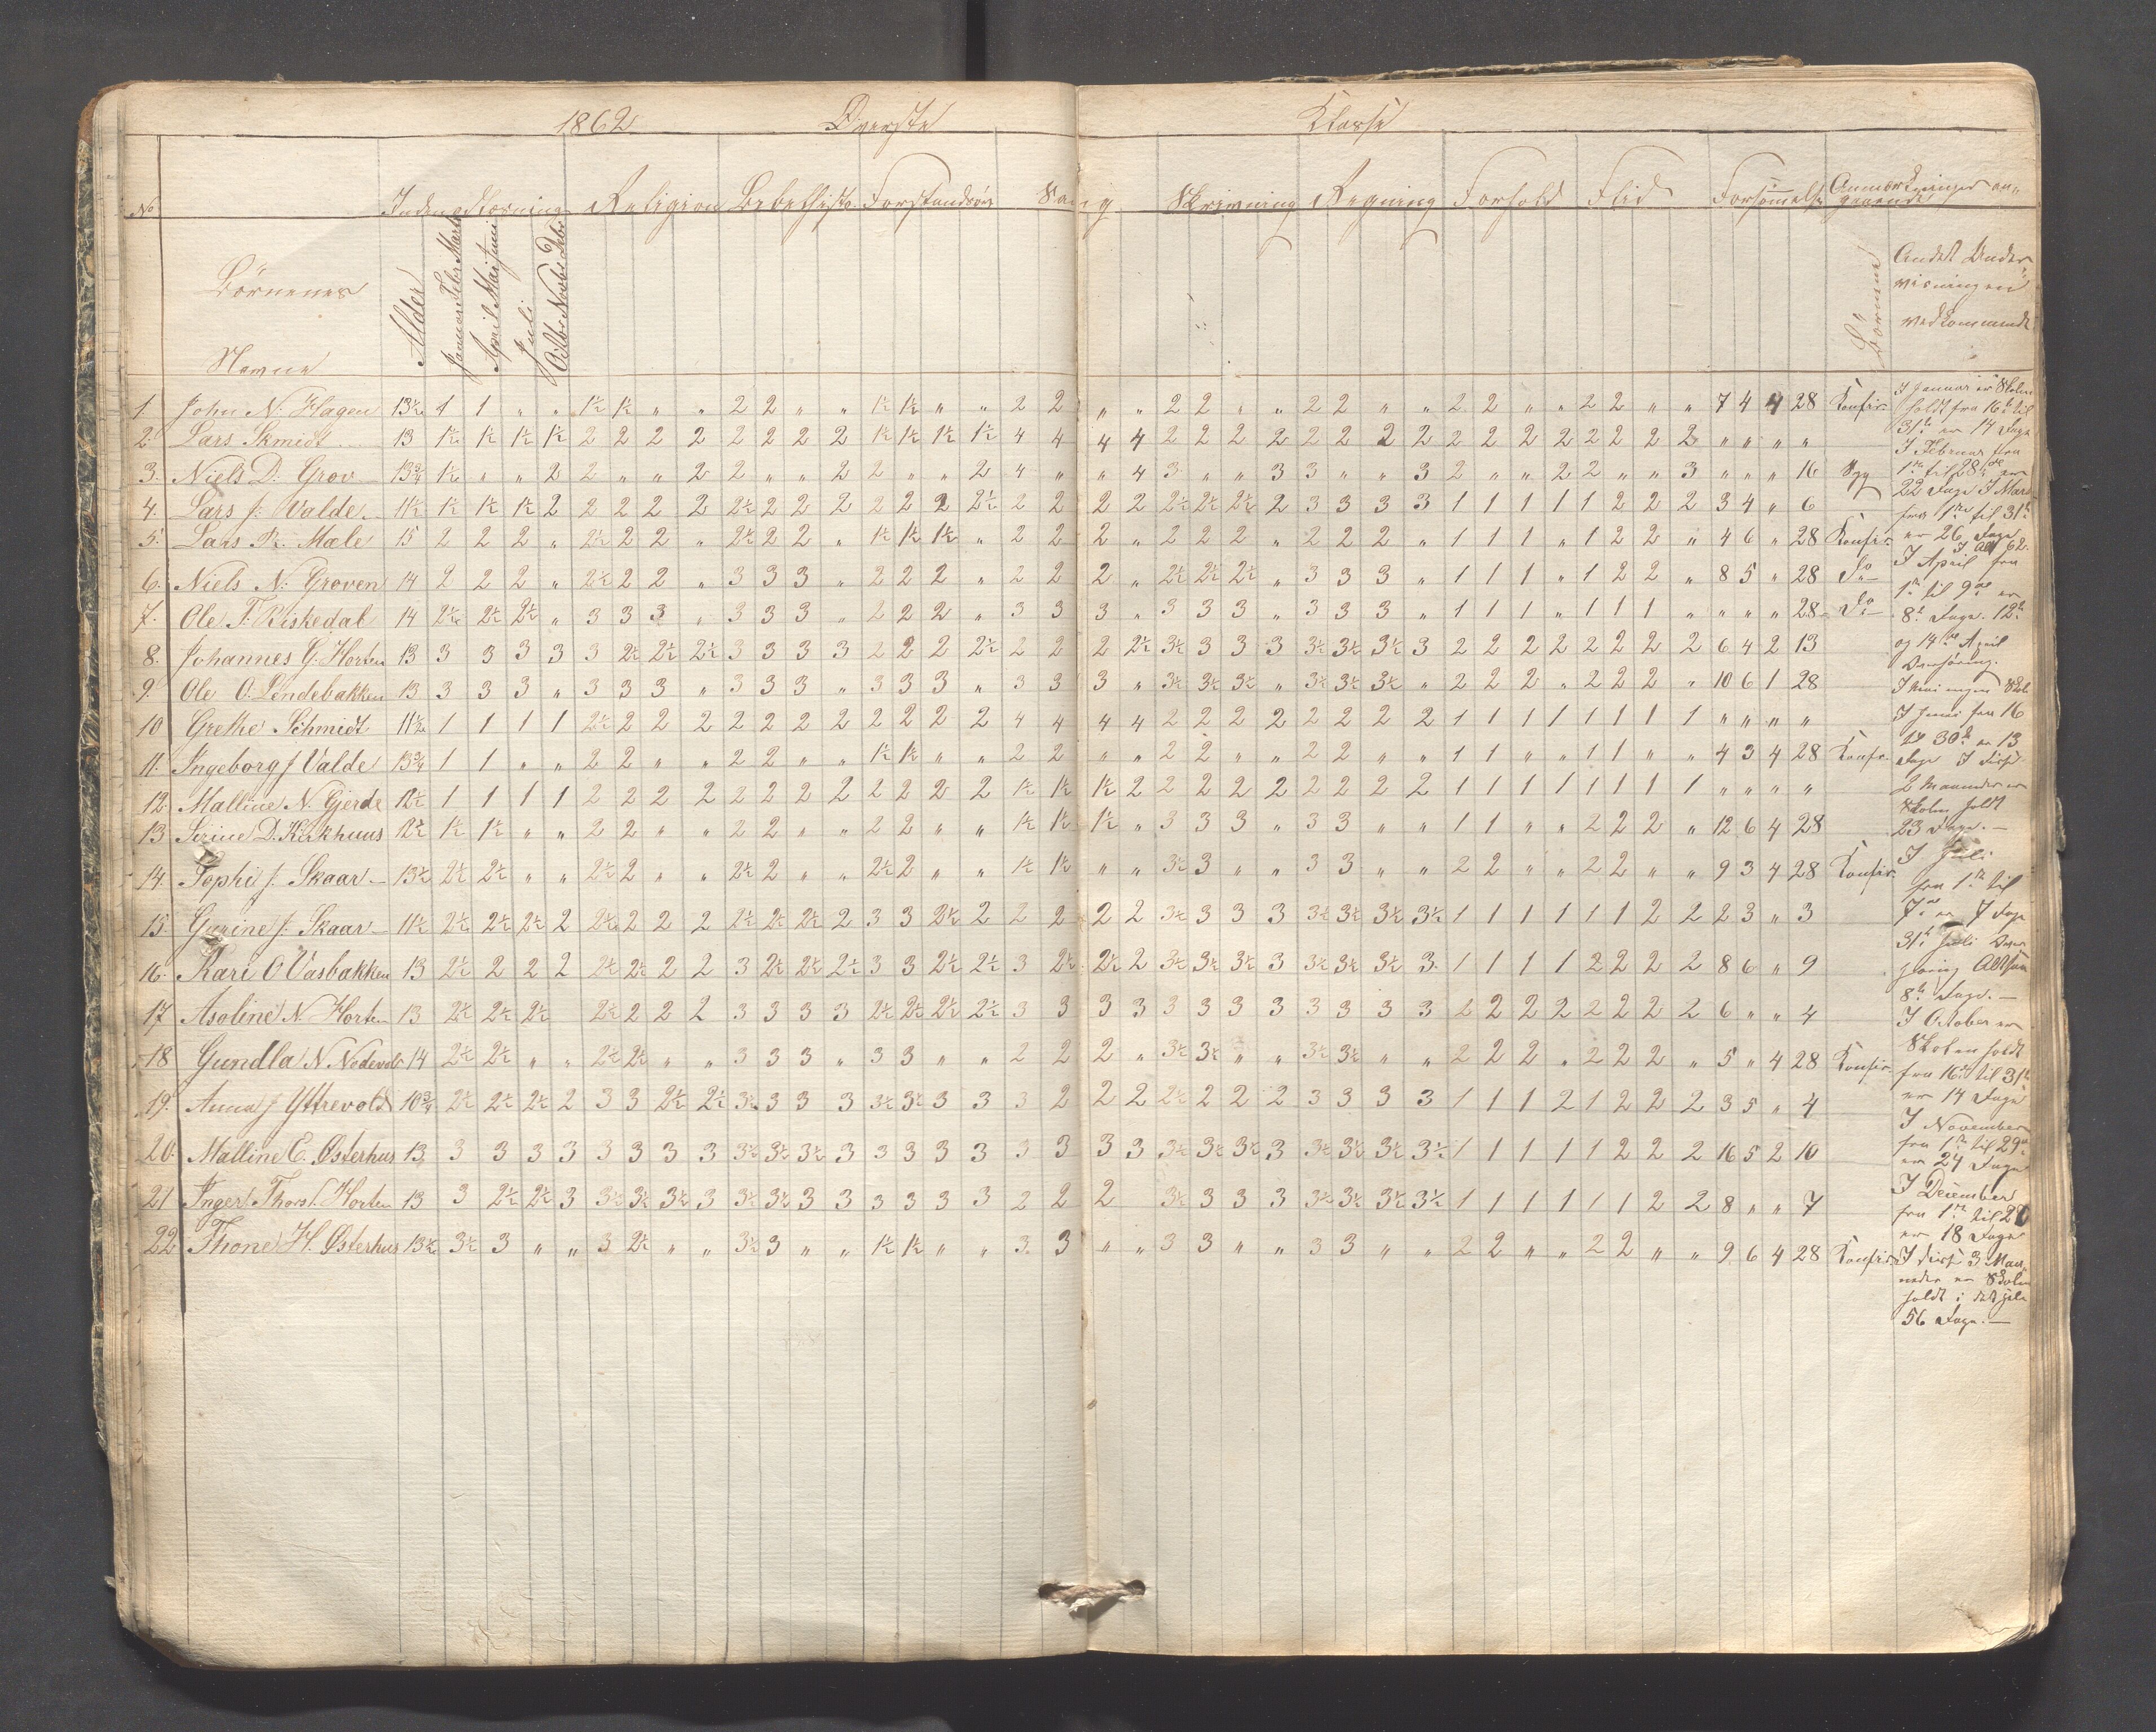 1862 Øverste Klasse
No Indenadlæsning Religion Bibelhisto. Forstandsøv Sang Skrivning Regning Forhold Flid Forsømmelse Anmærkninger an„
gaaende
Børnenes
Navne
Alder
Januar Febr Marts
April Mai Juni
Juli
Octbr Novbr Debr
Børnene
Andet Under
visningen
vedkommende
1. John N. Hagen 13½ 1 1 „ „ 1½ 1½ „ „ 2 2 „ „ 1½ 1½ „ „ 2 2 „ „ 2 2 „ „ 2 2 „ „ 2 2 „ „ 2 2 „ „ 7 4 4 28 Konfir.
2. Lars Skmidt 13 1½ 1½ 1½ 1½ 2 2 2 2 2 2 2 2 1½ 1½ 1½ 1½ 4 4 4 4 2 2 2 2 2 2 2 2 2 2 2 2 2 2 2 2 „ „ „ „
3. Niels D. Grov 13¾ 1½ „ „ 2 2 „ „ 2 2 „ „ 2 2 „ „ 2 4 „ „ 4 3 „ „ 3 3 „ „ 3 2 „ „ 2 2 „ „ 3 „ „ „ 16 Syg
4. Lars J. Valde 11½ 1½ 1½ 1½ 2 2 2 2 2 2½ 2 2 2 2 2 2 2½ 2 2 2 2 2½ 2½ 2½ 2 3 3 3 3 1 1 1 1 1 2 2 2 3 4 „ 6
5. Lars R. Mæle 15 2 2 2 „ 2½ 2 2 „ 2½ 2 2 „ 1½ 1½ 1½ „ 2 2 2 „ 2 2 2 „ 2 2 2 „ 1 1 1 „ 1 2 2 „ 4 6 „ 28 Konfir.
6. Niels N. Groven 14 2 2 2 „ 2½ 2 2 „ 3 3 3 „ 2 2 2 „ 2 2 2 „ 2½ 2½ 2½ „ 3 3 3 „ 1 1 1 „ 1 2 2 „ 8 5 „ 28 Do
7. Ole T. Kiskedal 14 2½ 2½ 2½ „ 3 3 3 „ 3 3 3 „ 2 2 2 „ 3 3 3 „ 3 3 3 „ 3 3 3 „ 1 1 1 „ 1 1 1 „ „ „ „ 28 Do
8. Johannes G. Horten 13 3 3 3 3 3 2½ 2½ 2½ 3 3 3 3 2 2 2 2½ 2 2 2 2½ 3½ 3 3 3 3½ 3½ 3½ 3 2 2 2 2 2 2 2 2 6 4 2 13
9. Ole O. Lendebakken 13 3 3 3 „ 3 3 3 „ 3 3 3 „ 3 3 3 „ 3 3 3 „ 3½ 3½ 3½ „ 3½ 3½ 3½ „ 2 2 2 „ 2 2 2 „ 10 6 1 28
10 Grethe Schmidt 11½ 1 1 1 1 2½ 2 2 2 2 2 2 2 2 2 2 2 4 4 4 4 2 2 2 2 2 2 2 2 1 1 1 1 1 1 1 1 „ „ „ „
11. Ingeborg J Valde 13¾ 1 1 „ „ 2 2 „ „ 2 2 „ „ 1½ 1½ „ „ 2 2 „ „ 2 2 „ „ 2 2 „ „ 1 1 „ „ 1 1 „ „ 4 3 4 28 Konfir.
12. Malline N. Gjerde 12½ 1 1 1 1 2 2 2 2 2 2 2 2 2 2 2 2 1½ 1½ 1½ 2 2 2 2 2 2 2 2 2 1 1 1 1 1 1 1 1 „ „ „ „
13 Sirine D. Kirkhuus 12½ 1½ 1½ „ „ 2 2 „ „ 2 2 „ „ 2 2 „ „ 1½ 1½ 1½ „ 3 3 3 „ 3 3 „ „ 1 1 „ „ 2 2 2 „ 12 6 4 28
14. Sophi J. Skaar 13½ 2½ 2½ „ „ 2½ 2 „ „ 2½ 2 „ „ 2½ 2 „ „ 1½ 1½ „ „ 3½ 3 „ „ 3 3 „ „ 2 2 „ „ 2 2 „ „ 9 3 4 28 Konfir.
15. Gurine J. Skaar 11½ 2½ 2½ 2½ 2 2½ 2 2 2 2½ 2½ 2½ 2 3 3 2½ 2 2 2 2 2 3½ 3 3 3 3½ 3½ 3½ 3½ 1 1 1 1 1 1 2 2 2 3 „ 3
16. Kari O Vasbakken 13 2½ 2 2 2 2½ 2½ 2 2 3 2½ 2½ 2½ 3 3 2½ 2½ 3 2½ 2½ 2 3½ 3½ 3½ 3 3½ 3½ 3½ 3 1 1 1 1 2 2 2 2 8 6 „ 9
17 Asoline N. Horten 13 2½ 2½ 2½ 2½ 2 2 2 3 3 3 3 2½ 2½ 2½ 2½ 3 3 3 3 3 3 3 3 3 3 3 3 2 2 2 2 2 2 2 2 6 „ „ 4
18 Gundla N. Nedrevold 14 2½ 2½ „ „ 2½ 2½ „ „ 3 3 3 „ 3 3 „ „ 2 2 2 „ 3½ 3½ „ „ 3½ 3½ „ „ 2 2 2 „ 2 2 2 „ 5 „ 4 28 Konfir.
19. Anna J Yttrevold 10¾ 2½ 2½ 2½ 2 3 3 2½ 2½ 3½ 3 3 3 3½ 3½ 3 3 3 2 2 2 2½ 2 2 2 3 3 3 3 1 1 1 2 1 2 2 2 3 5 „ 4
20. Malline E. Østerhus 13 3 3 3 3 3 3 3 3 3½ 3½ 3½ 3 3 3 3 3 3 3 3 3 3½ 3½ 3½ 3 3½ 3½ 3½ 3½ 1 1 1 1 1 2 2 2 16 5 2 10
21 Inger Thors. Horten 13 3 2½ 2½ 3 3½ 3½ 3½ 3 3½ 3½ 3 3 3 3 3 3 2 2 2 3½ 3 3 3 3½ 3½ 3½ 3½ 1 1 1 1 1 1 2 2 8 „ „ 7
22 Thone H. Østerhus 13½ 3½ 3 „ „ 3 2½ „ „ 3½ 3 „ „ 1½ 1½ „ „ 3 3 „ „ 3 3 „ „ 3 3 „ „ 2 2 „ „ 2 2 „ „ 9 6 4 28 Konfir.
I Januar er Skolen
holdt fra 16de til
31te er 14 Dage
I Februar fra
1ste til 28de er
22 Dage I Mars
fra 1ste til 31te
er 26 Dage
I Alt 62.
I April fra
1ste til 9de er
8te Dage. 12te
og 14de April
Overhøring.
I Mai ingen Skole
I Juni fra 16
til 30te er 13
Dage I disse
2 Maaneder er
Skolen holdt
23 Dage. —
I Juli
fra 1ste til
7de er 7 Dage
31te Juli Over
høring Altsaa
8te Dage. —
I October er
Skolen holdt
fra 16de til 31te
er 14 Dage
I November
fra 1ste til 29de
er 24 Dage
I December
fra 1ste til 20
er 18 Dage
I disse 3 Maa
neder er Skolen
holdt i det hele
56 Dage. —